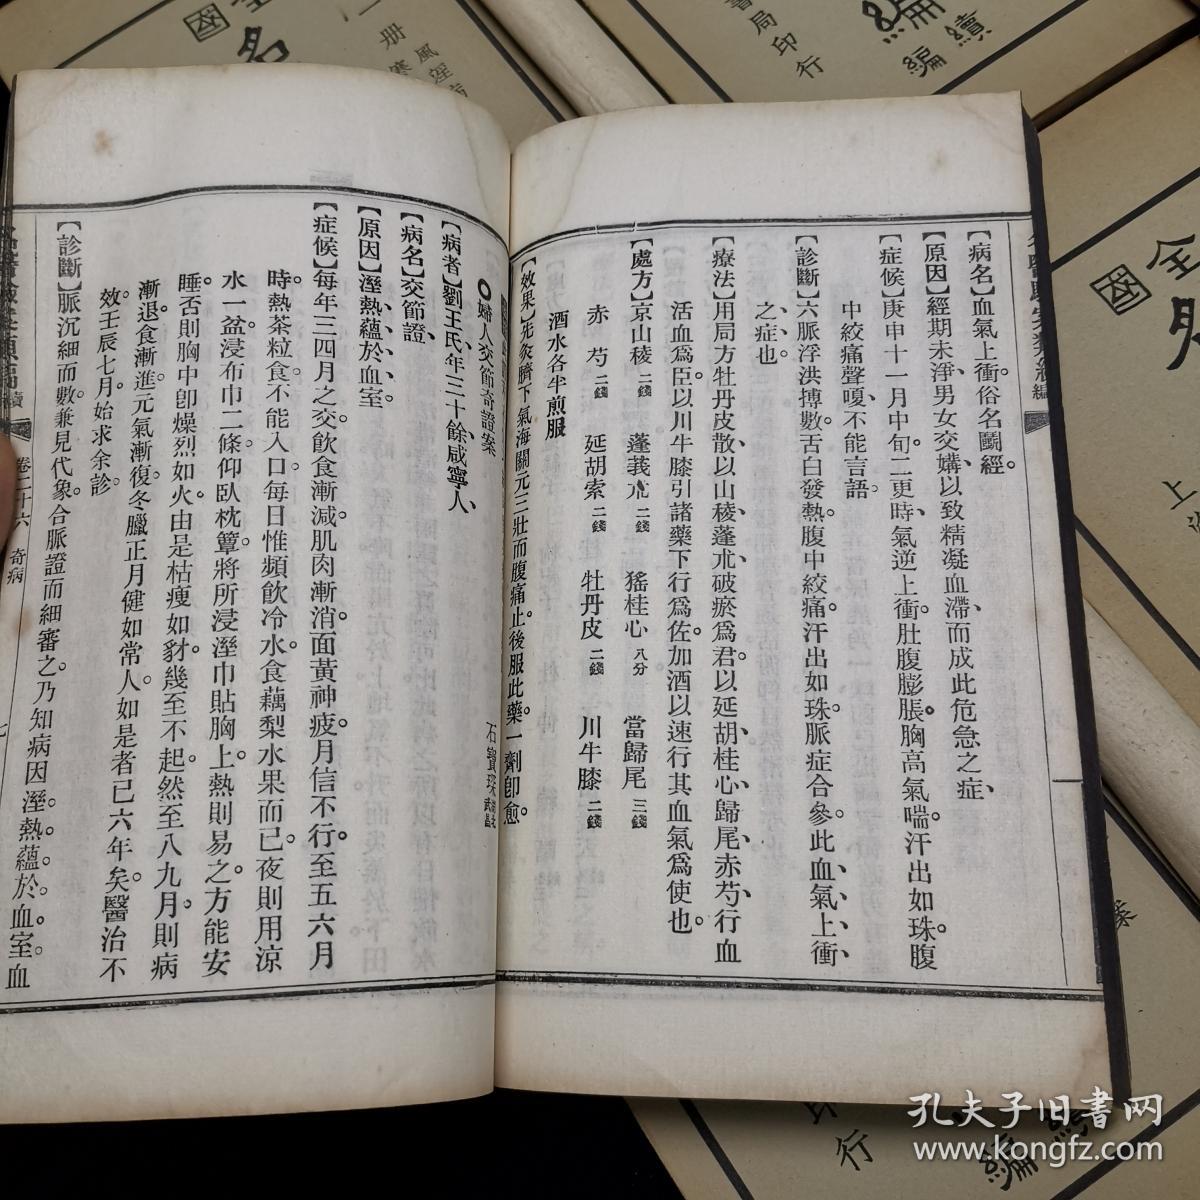 【病名】血氣上衝俗名鬭經。
【原因】經期未淨男女交媾以致精凝血滯而成此危急之症、
【症候】庚申十一月中旬二更時、氣逆上衝肚腹膨脹。胸高氣喘。汗出如珠腹
中絞痛聲嗄不能言語。
【診斷】六脈浮洪搏數舌白發熱。腹中絞痛。汗出如珠。脈症合參。此血氣上衝、
之症也
【療法】用局方牡丹皮散以山稜蓬朮破瘀爲君。以延胡桂心歸尾赤芍行血
活血爲臣。以川牛膝引諸藥下行爲佐。加酒以速行其血氣爲使也。
【處方】京山稜 二錢 蓬莪朮 二錢 猺桂心 八分 當歸尾 三錢
赤芍 二錢 延胡索 二錢 牡丹皮 二錢 川牛膝 二錢
酒水各半煎服
【效果】先灸臍下氣海關元三壯而腹痛止。後服此藥。一劑卽愈。
婦人交節奇證案
石寶琛 湖北武昌
【病者】劉王氏年三十餘咸寧人、
【病名】交節證、
【原因】溼熱蘊於血室
【症候】每年三四月之交飲食漸減。肌肉漸消。面黃神疲。月信不行。至五六月
時。熱茶粒食不能入口。每日惟頻飲冷水食藕梨水果而已。夜則用涼
水一盆。浸布巾二條。仰臥枕簟將所浸溼巾貼胸上。熱則易之。方能安
睡。否則胸中卽燥烈如火。由是枯瘦如豺。幾至不起。然至八九月。則病
漸退食漸進元氣漸復。冬臘正月健如常人。如是者已六年矣。醫治不
效。壬辰七月。始求余診
【診斷】脈沉細而數。兼見代象。合脈證而細審之。乃知病因溼熱蘊於血室。血
卷二十六 奇病
七
孔夫子旧書网
www.kongfz.com